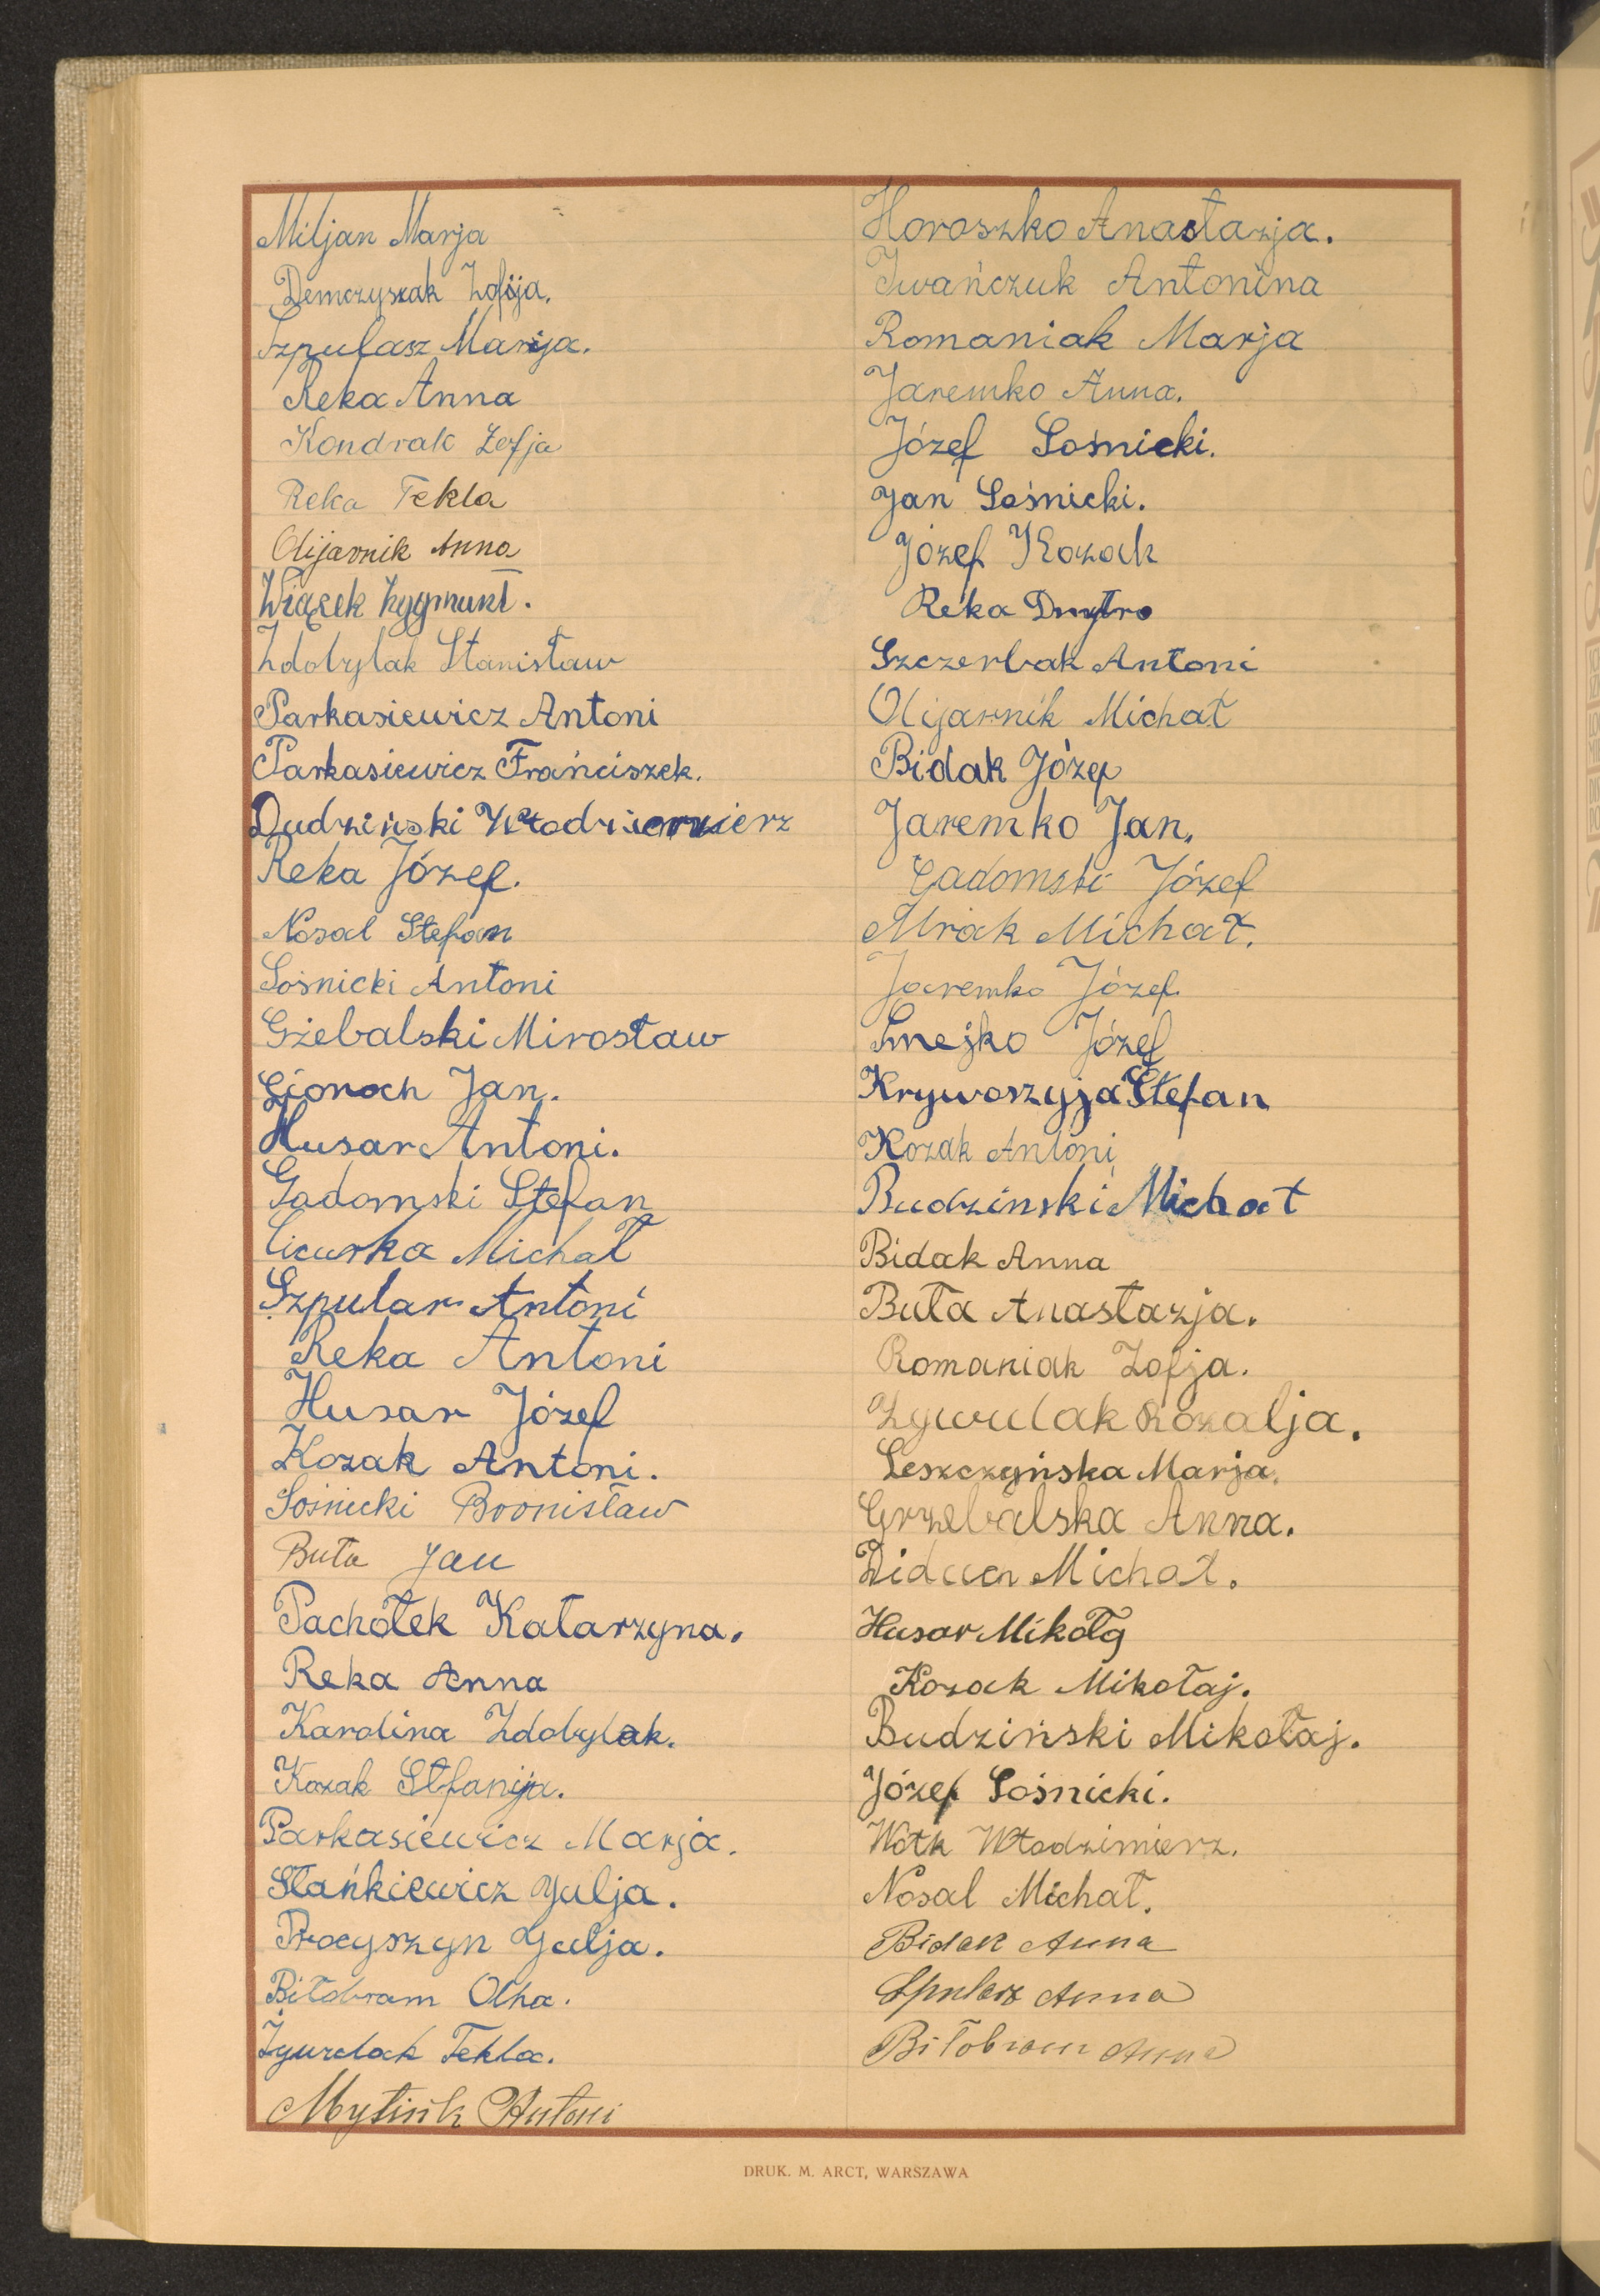 Miljan Marja
Demczyszak Zofija.
Szpulasz Marija.
Reka Anna
Kondrak Zofja
Reka Tekla
Olijarnik Anna
Wiącek Zygmunt.
Zdobylak Stanisław
Parkasiewicz Antoni
Parkasiewicz Frańciszek.
Dudziński Włodzimierz
Reka Józef.
Nosal Stefan
Sośnicki Antoni
Gżebalski Mirosław
Gionoch Jan.
Husar Antoni.
Gadomski Stefan
Ciurka Michał
Szpular Antoni
Reka Antoni
Husar Józef
Kozak Antoni.
Sośnicki Bronisław
Buła Jan
Pachołek Katarzyna.
Reka Anna
Karolina Zdobylak.
Kozak Stfanija.
Parkasiewicz Marja.
Stańkiewicz Julja.
Procyszyn Julja.
Biłobram Olha.
Żywulak Tekla.
Antoni
Horoszko Anastazja.
Iwańczuk Antonina
Romaniak Marja
Jaremko Anna.
Józef Sośnicki.
Jan Sośnicki.
Józef Kozak
Reka Dmytro
Szczerbak Antoni
Olijarnik Michał
Bidak Józef
Jaremko Jan.
Gadomski Józef
Mrak Michał.
Jaremko Józef.
Smejko Józef
Krywoszyja Stefan
Kozak Antoni
Budzinski Michał
Bidak Anna
Buła Anastazja.
Romaniak Zofja.
Zywulak Rozalja.
Leszczyńska Marja.
Grzebalska Anna.
Michał.
Husar Mikołaj
Kozak Mikołaj.
Budziński Mikołaj.
Józef Sośnicki.
Wołk Włodzimierz.
Nosal Michał.
Bidak Anna
Spularz Anna
Biłobram Anna
DRUK. M. ARCT, WARSZAWA